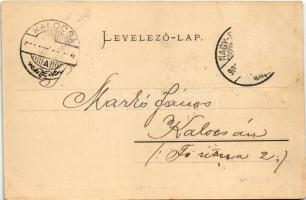 KALOCSA
LEVELEZŐ-LAP.
NAGY-
Markó János
Kalocsán
(: Fő utcza 2 :)